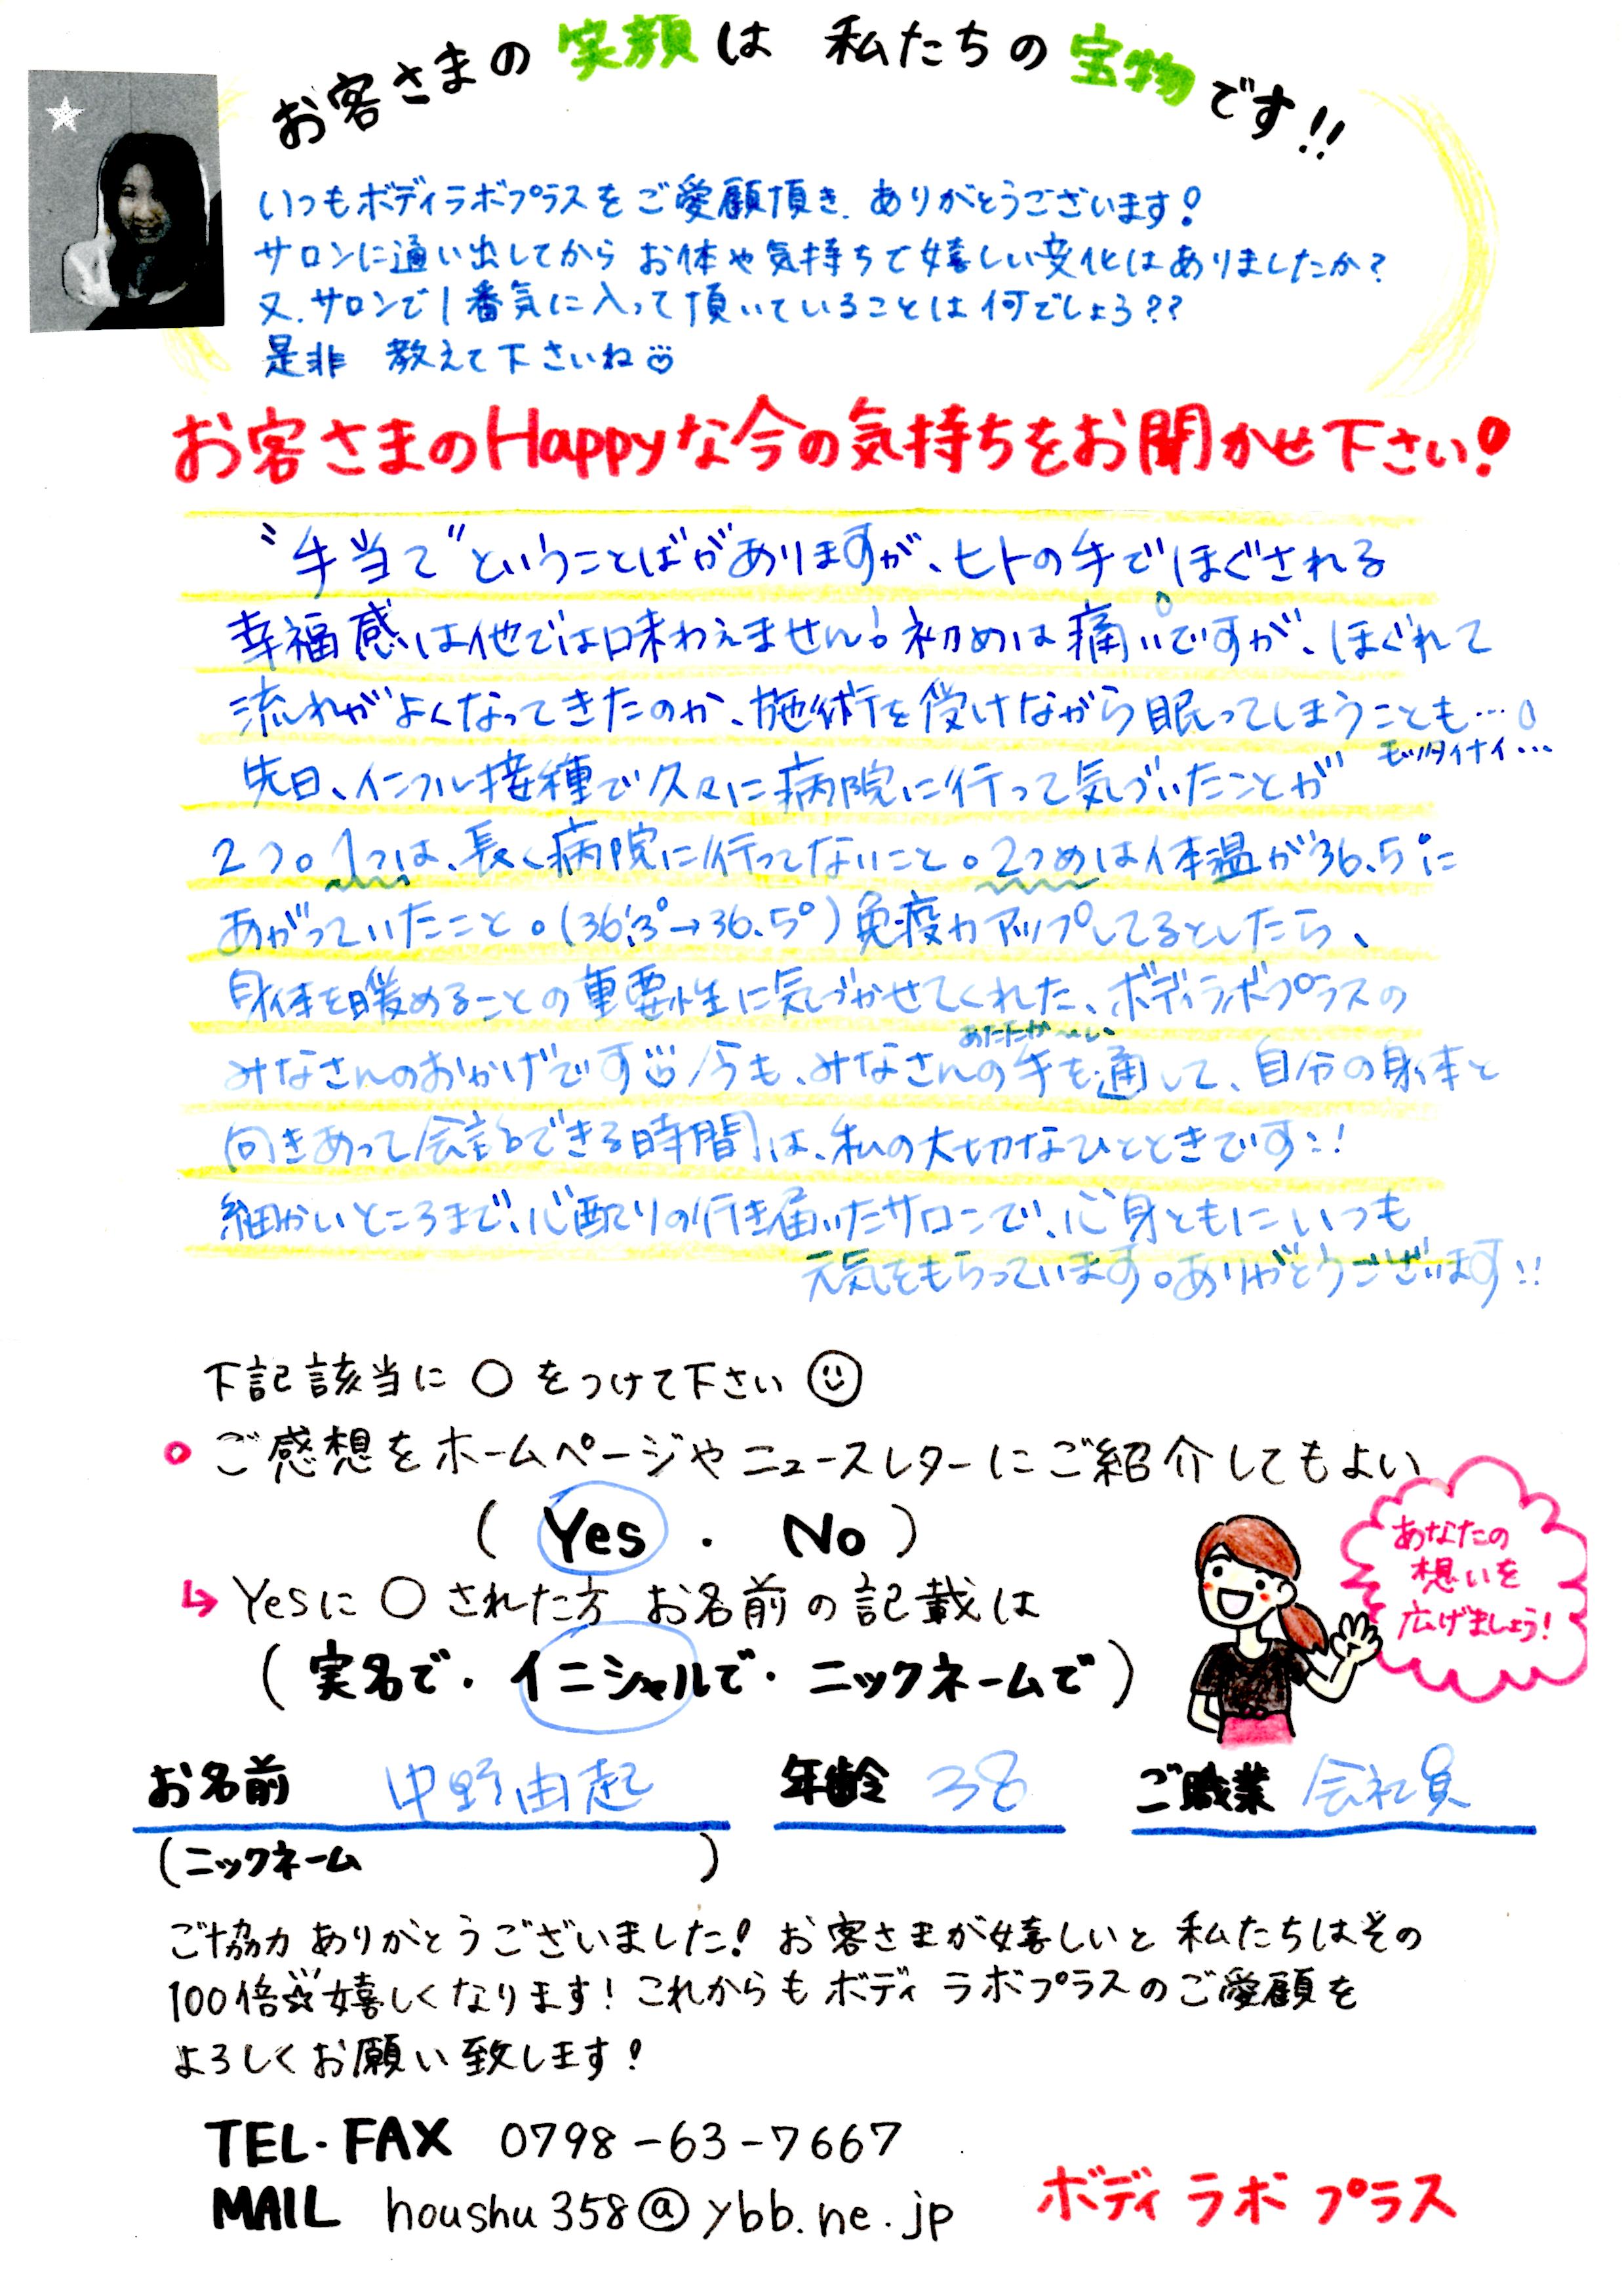 お客さまの笑顔は 私たちの宝物です!!
いつもボディラボプラスをご愛顧頂き、ありがとうございます!
サロンに通い出してから お体や気持ちで嬉しい変化はありましたか?
又、サロンで1番気に入って頂いていることは何でしょう??
是非 教えて下さいね
お客さまのHappyな今の気持ちをお聞かせ下さい!
"手当て"ということばがありますが、ヒトの手でほぐされる
幸福感は他では味わえません!初めは痛いですが、ほぐれて
流れがよくなってきたのか、施術を受けながら眠ってしまうことも…。
モッタイナイ…
先日、インフル接種で久々に病院に行って気づいたことが
2つ。1つは、長く病院に行ってないこと。2つめは体温が36.5°に
あがっていたこと。(36.3°→36.5°)免疫力アップしてるとしたら、
身体を暖めることの重要性に気づかせてくれた、ボディラボプラスの
みなさんのおかげです 今も、みなさんの手を通して、自分の身体と
あたたか〜い
向きあって会話できる時間は、私の大切なひとときです!!
細かいところまで、心配りの行き届いたサロンで、心身ともにいつも
元気をもらっています。ありがとうございます!!
下記該当に ○ をつけて下さい
ご感想をホームページやニュースレターにご紹介してもよい
( Yes ・ No )
↳ Yesに ○ された方 お名前の記載は
( 実名で・イニシャルで・ニックネームで )
あなたの
想いを
広げましょう!
お名前 中野由起 年齢 38 ご職業 会社員
(ニックネーム )
ご協力 ありがとうございました! お客さまが嬉しいと 私たちはその
100倍☆嬉しくなります! これからも ボディ ラボプラスのご愛顧を
よろしくお願い致します!
TEL・FAX 0798-63-7667
MAIL houshu358@ybb.ne.jp
ボディ ラボ プラス